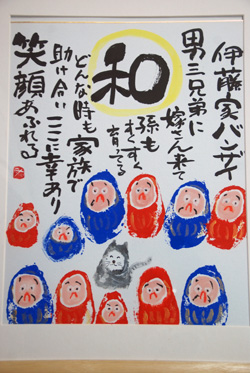 伊藤家バンザイ
男三兄弟に
嫁さん来て
孫も
すくすく
育ってる
和
どんな時も
家族で
助け合い
ここに幸あり
笑顔あふれる